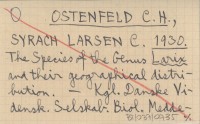 O OSTENFELD C.H.,
SYRACH LARSEN C. 1930.
The Species of the Genus Larix
and their geographical distri-
bution. Kgl. Danske Vi-
densk. Selskab. Biol. Medde-